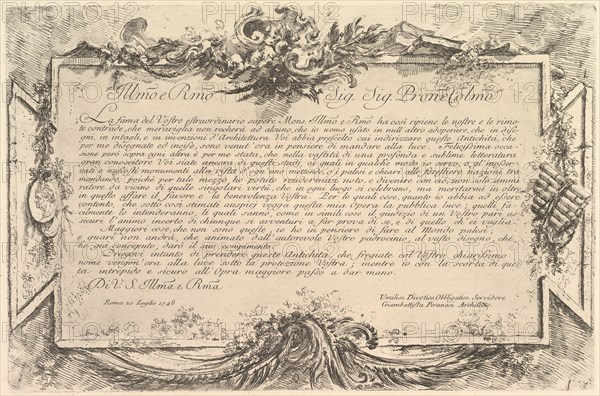 Illmo e Rmo Sig. Sig. Prone Colmo
La fama del Vostro estraordinario sapere Mons. Illmo e Rmo ha così ripiene le nostre e le rimo-
te contrade, che meraviglia non recherà ad alcuno, che io uomo usato in null'altro adoperare, che in dise-
gni, in intagli, e in invenzioni d'Architettura Voi abbia prescelto cui indirizzare queste Antichità, che
per me disegnate ed incise, sono venut'ora in pensiere di mandare alla luce. Felicissima occa-
sione però sopra ogni altra è per me stata, che nella vastità di una profonda e sublime letteratura
gran conoscitore Voi siate ancora di questi studj, ai quali in qualche modo io servo, o al
ed i nascosti monumenti alla vista d'ogni uno mettendo, o i palesi e chiari alle forestiere nazioni tra
mandando; poichè per tale mezzo ho potuto
ratore da vicino di quelle singolari virtù, che in ogni luogo si celebrano, ma meritarmi in oltre
in questo affare il favore e la benevolenza Vostra. Per la qual cosa, quando io abbia ad esser
contento, che sotto così stimati auspicj vegga questa mia Opera la pubblica luce; quelli fa-
cilmente lo intenderanno, li quali sanno, come in simili cose al giudizio di un Vostro pari as-
sicura l'animo incerto di chiunque si avventura a far prova di se, in quello ch'ei vaglia.
Maggiori cose, che non sono queste, io ho in pensiero di fare al Mondo palesi;
e guari non andrà, che animato dall'autorevole Vostro padrocinio, al vasto disegno, che
ho già conceputo, darò il suo compimento.
Pregovi intanto di prendere queste Antichità, che fregiate col Vostro chiarissimo
nome vengon'ora alla luce sotto la protezione Vostra; mentre io con la scorta di que-
sta intrepido e sicuro all'Opra maggiore passo a dar mano.
Di V. S. Illma e Rma
Roma 20 Luglio 1748
Umilios Divotios Obbligatios Servidore
Giambattista Piranesi Architetto